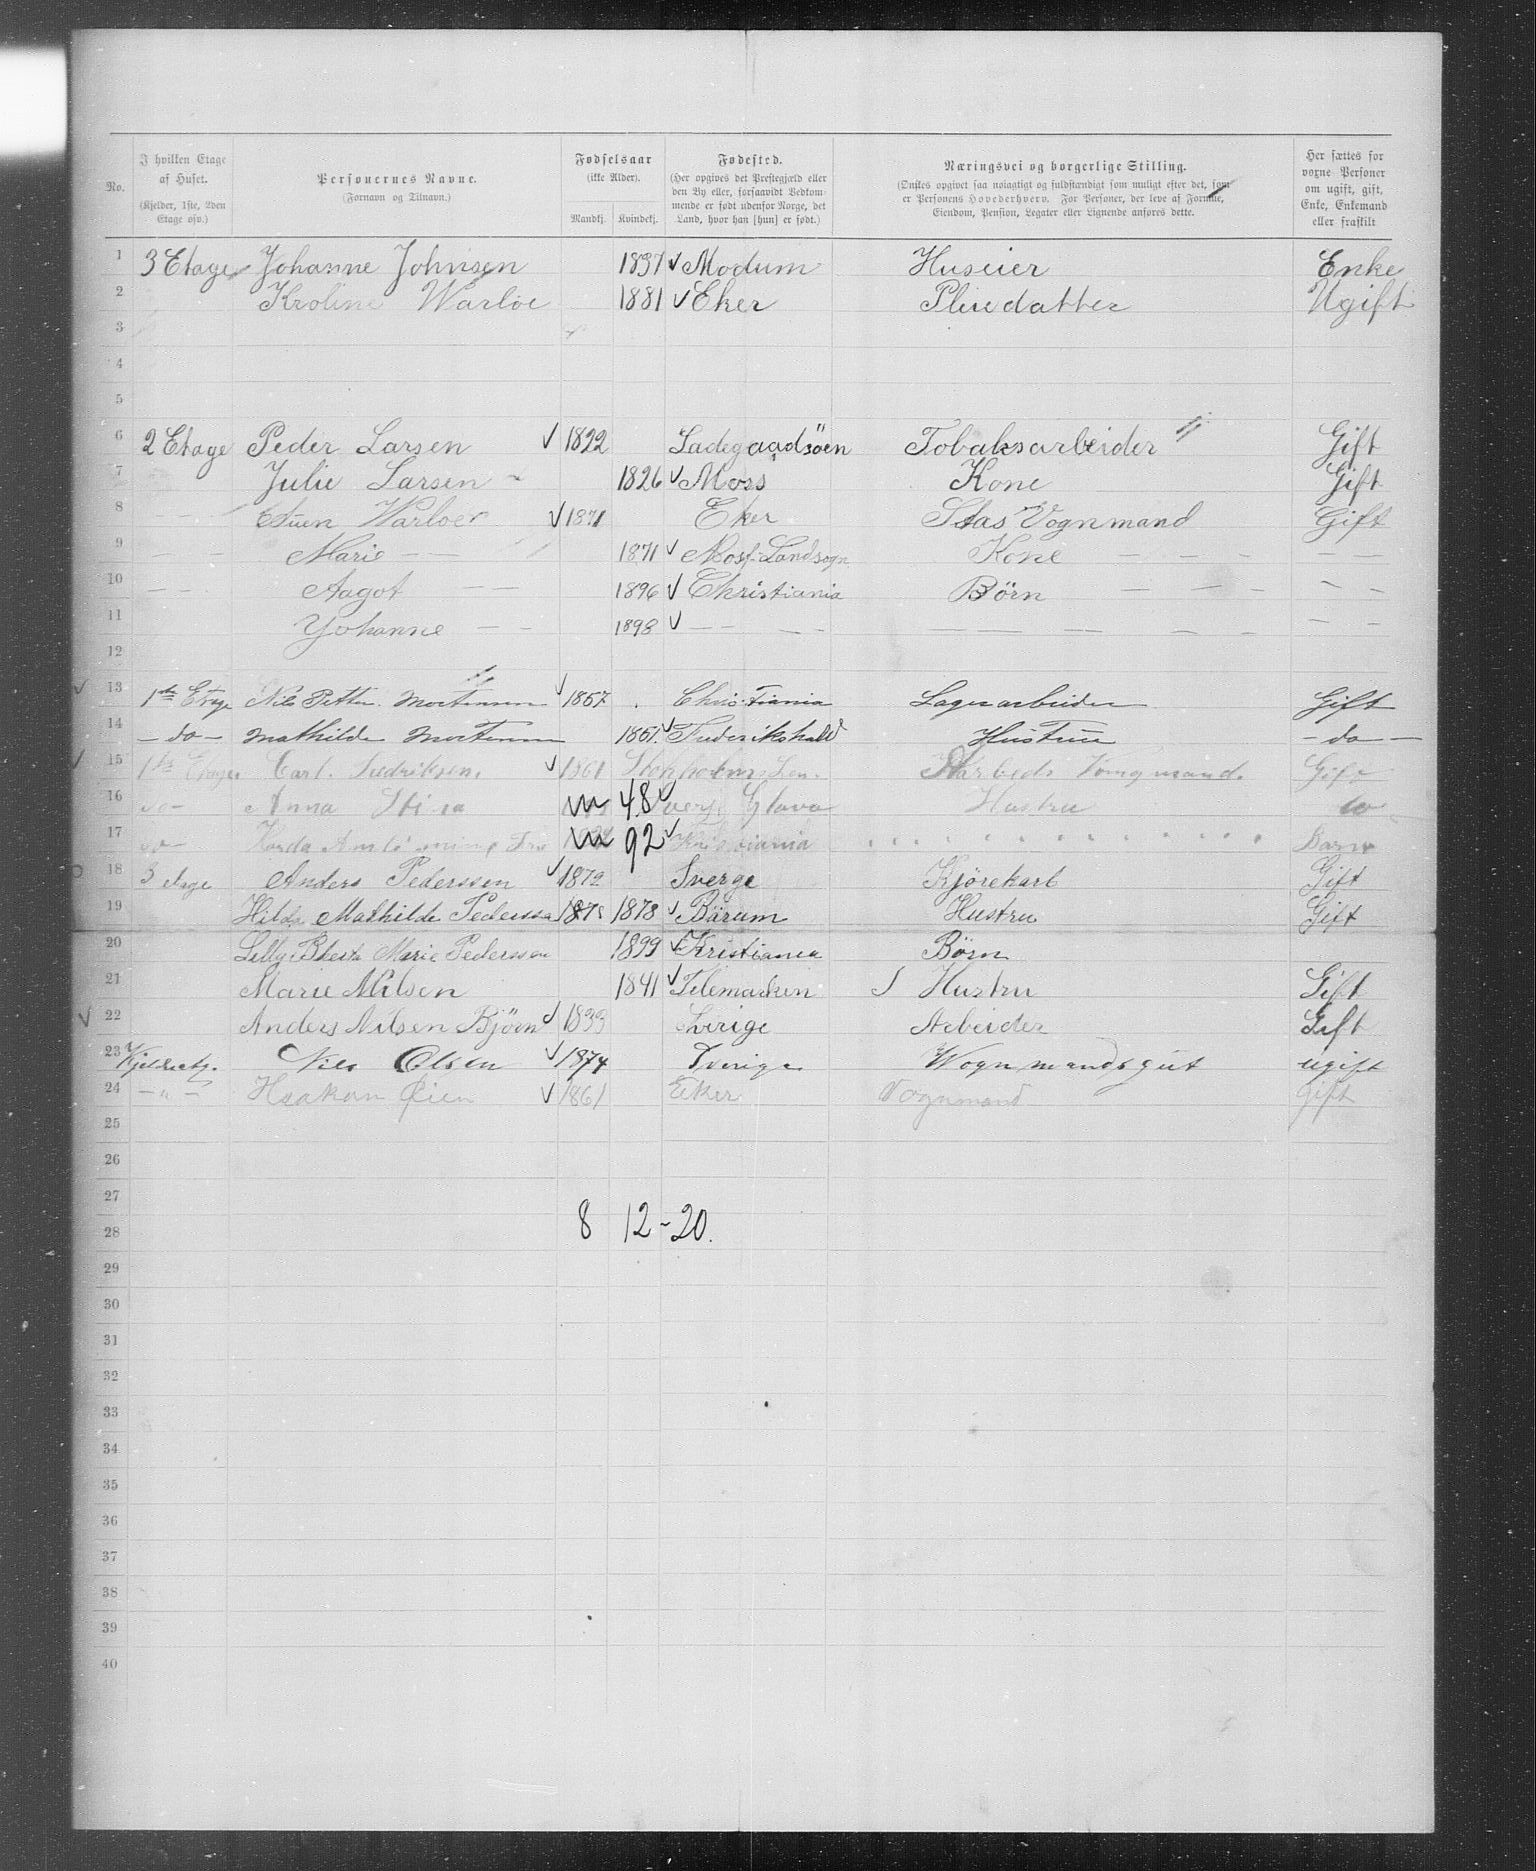 No.
I hvilken Etage af Huset. (Kjelder, 1ste, 2den Etage osv.)
Personernes Navne. (Fornavn og Tilnavn.)
Fødselsaar (ikke Alder). Mandkj. Kvindekj.
Fødested. (Her opgives det Præstegjæld eller den By eller, forsaavidt Vedkommende er født udenfor Norge, det Land, hvor han [hun] er født.)
Næringsvei og borgerlige Stilling. (Ønskes opgivet saa nøiagtigt og fuldstændigt som muligt efter det, som er Personens Hovederhverv. For Personer, der leve af Formue, Eiendom, Pension, Legater eller Lignende anføres dette.)
Her sættes for voxne Personer om ugift, gift, Enke, Enkemand eller fraskilt
1 3 Etage Johanne Johnsen 1837 ✓ Modum Huseier Enke
2 Kroline Warloe 1881 ✓ Eker Pleiedatter Ugift
3
4
5
6 2 Etage Peder Larsen ✓ 1822 Ladegaadsöen Tobaksarbeider Gift
7 Julie Larsen 1826 ✓ Moss Kone Gift
8 — — Warloe ✓ 1871 Eker Vognmand Gift
9 — — Marie — — 1871 ✓ Moss Landsogn Kone — — — — —
10 — — Aagot — — 1896 ✓ Christiania Børn — — — — —
11 Johanne — — 1898 ✓ — — — — — — — — — — —
12
13 1ste Etage Nils Petter Mortensen ✓ 1857 Christiania Lagerarbeider Gift
14 — do — Mathilde Mortensen 1851 ✓ Frederikshald Hustru — do —
15 1ste Etage Carl Fredriksen ✓ 1861 Stokholms Len. Gift
16 do — Anna Stina 48 ✓ Glava Hustru do
17 do — 92 ✓ Kristiania Barn
18 3 etage Anders Pederssen ✓ 1872 Sverge Kjørekarl Gift
19 Hilda Mathilde Pederssen 1878 1878 ✓ Bärum Hustru Gift
20 Lilly Marie Pederssen 1899 ✓ Kristiania Børn
21 Marie Nilsen 1841 ✓ Telemarken Hustru Gift
22 Anders Nilsen Bjørn ✓ 1833 Sverige Arbeider Gift
23 Kjelderetg. Nils Olsen ✓ 1874 Sverige Wognmandsgut ugift
24 — " — Haakon Øien ✓ 1861 Eker Vognmand gift
25
26
27
8 12 - 20.
28
29
30
31
32
33
34
35
36
37
38
39
40